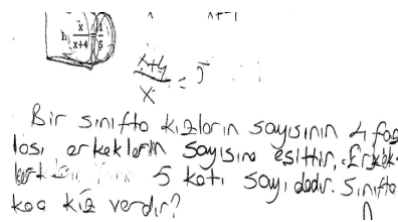 x/x+4 = 1/5
x+4/x = 5
Bir sınıfta kızların sayısının 4 faz
lası erkeklerin sayısına eşittir. Erkek
5 katı sayıdadır. Sınıfta
kaç kız vardır?